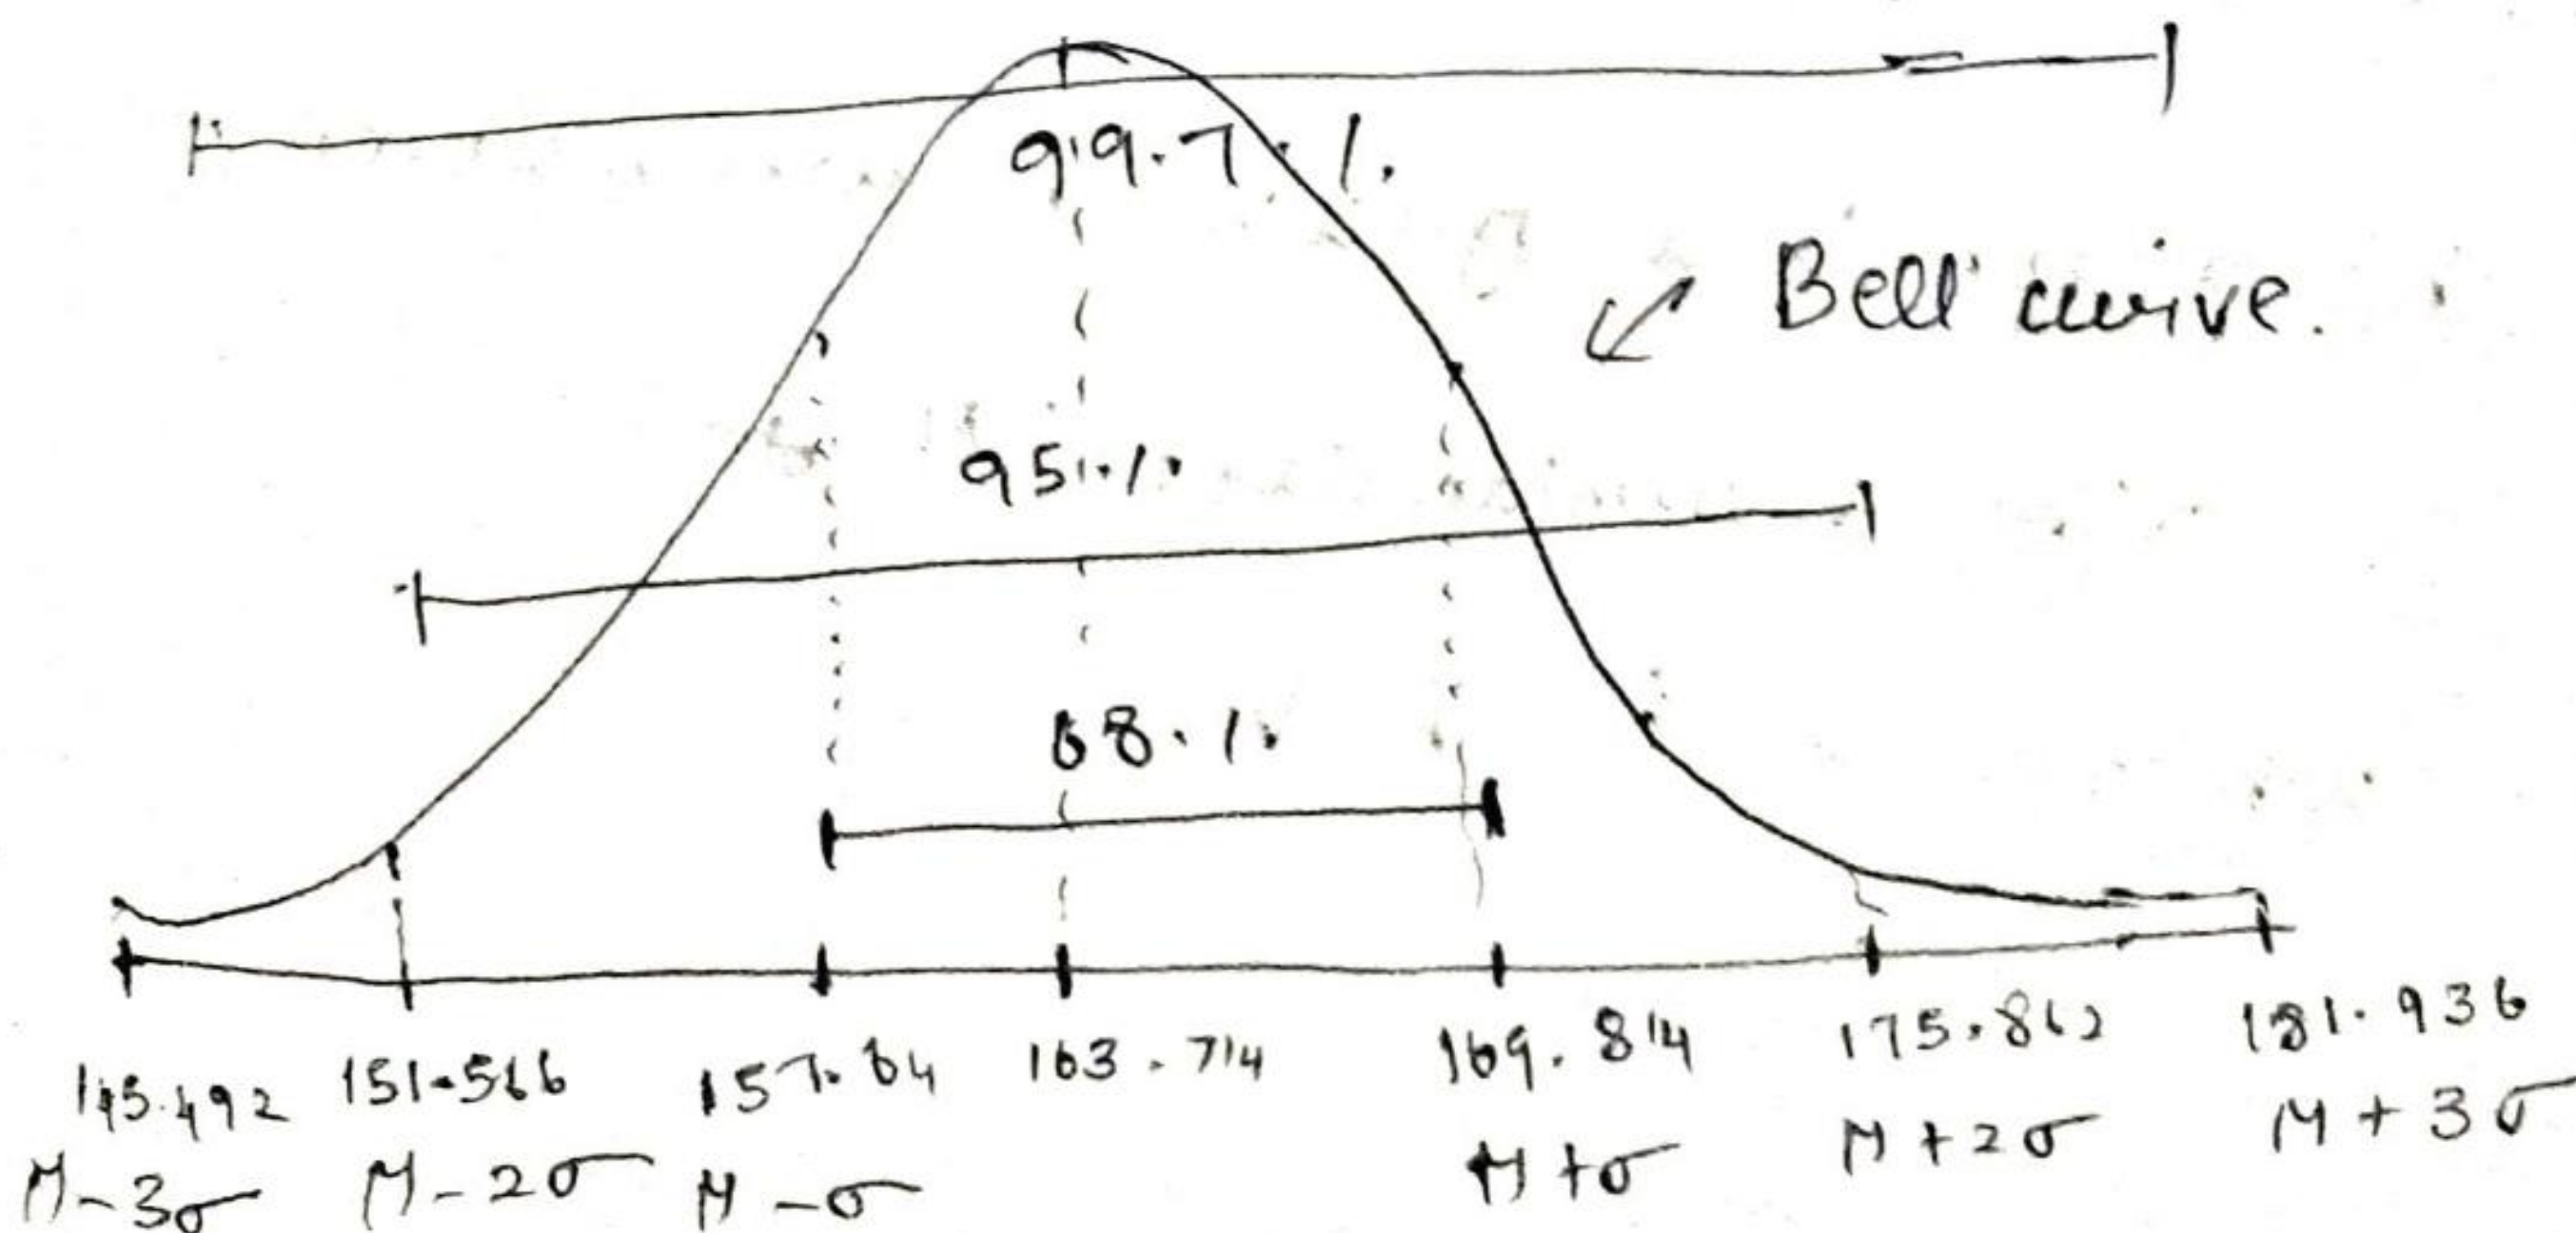 99.7%.
Bell curve.
95%.
68%.
145.492 151.566 157.64 163.714 169.814 175.862 181.936
M-3σ M-2σ M-σ M+σ M+2σ M+3σ